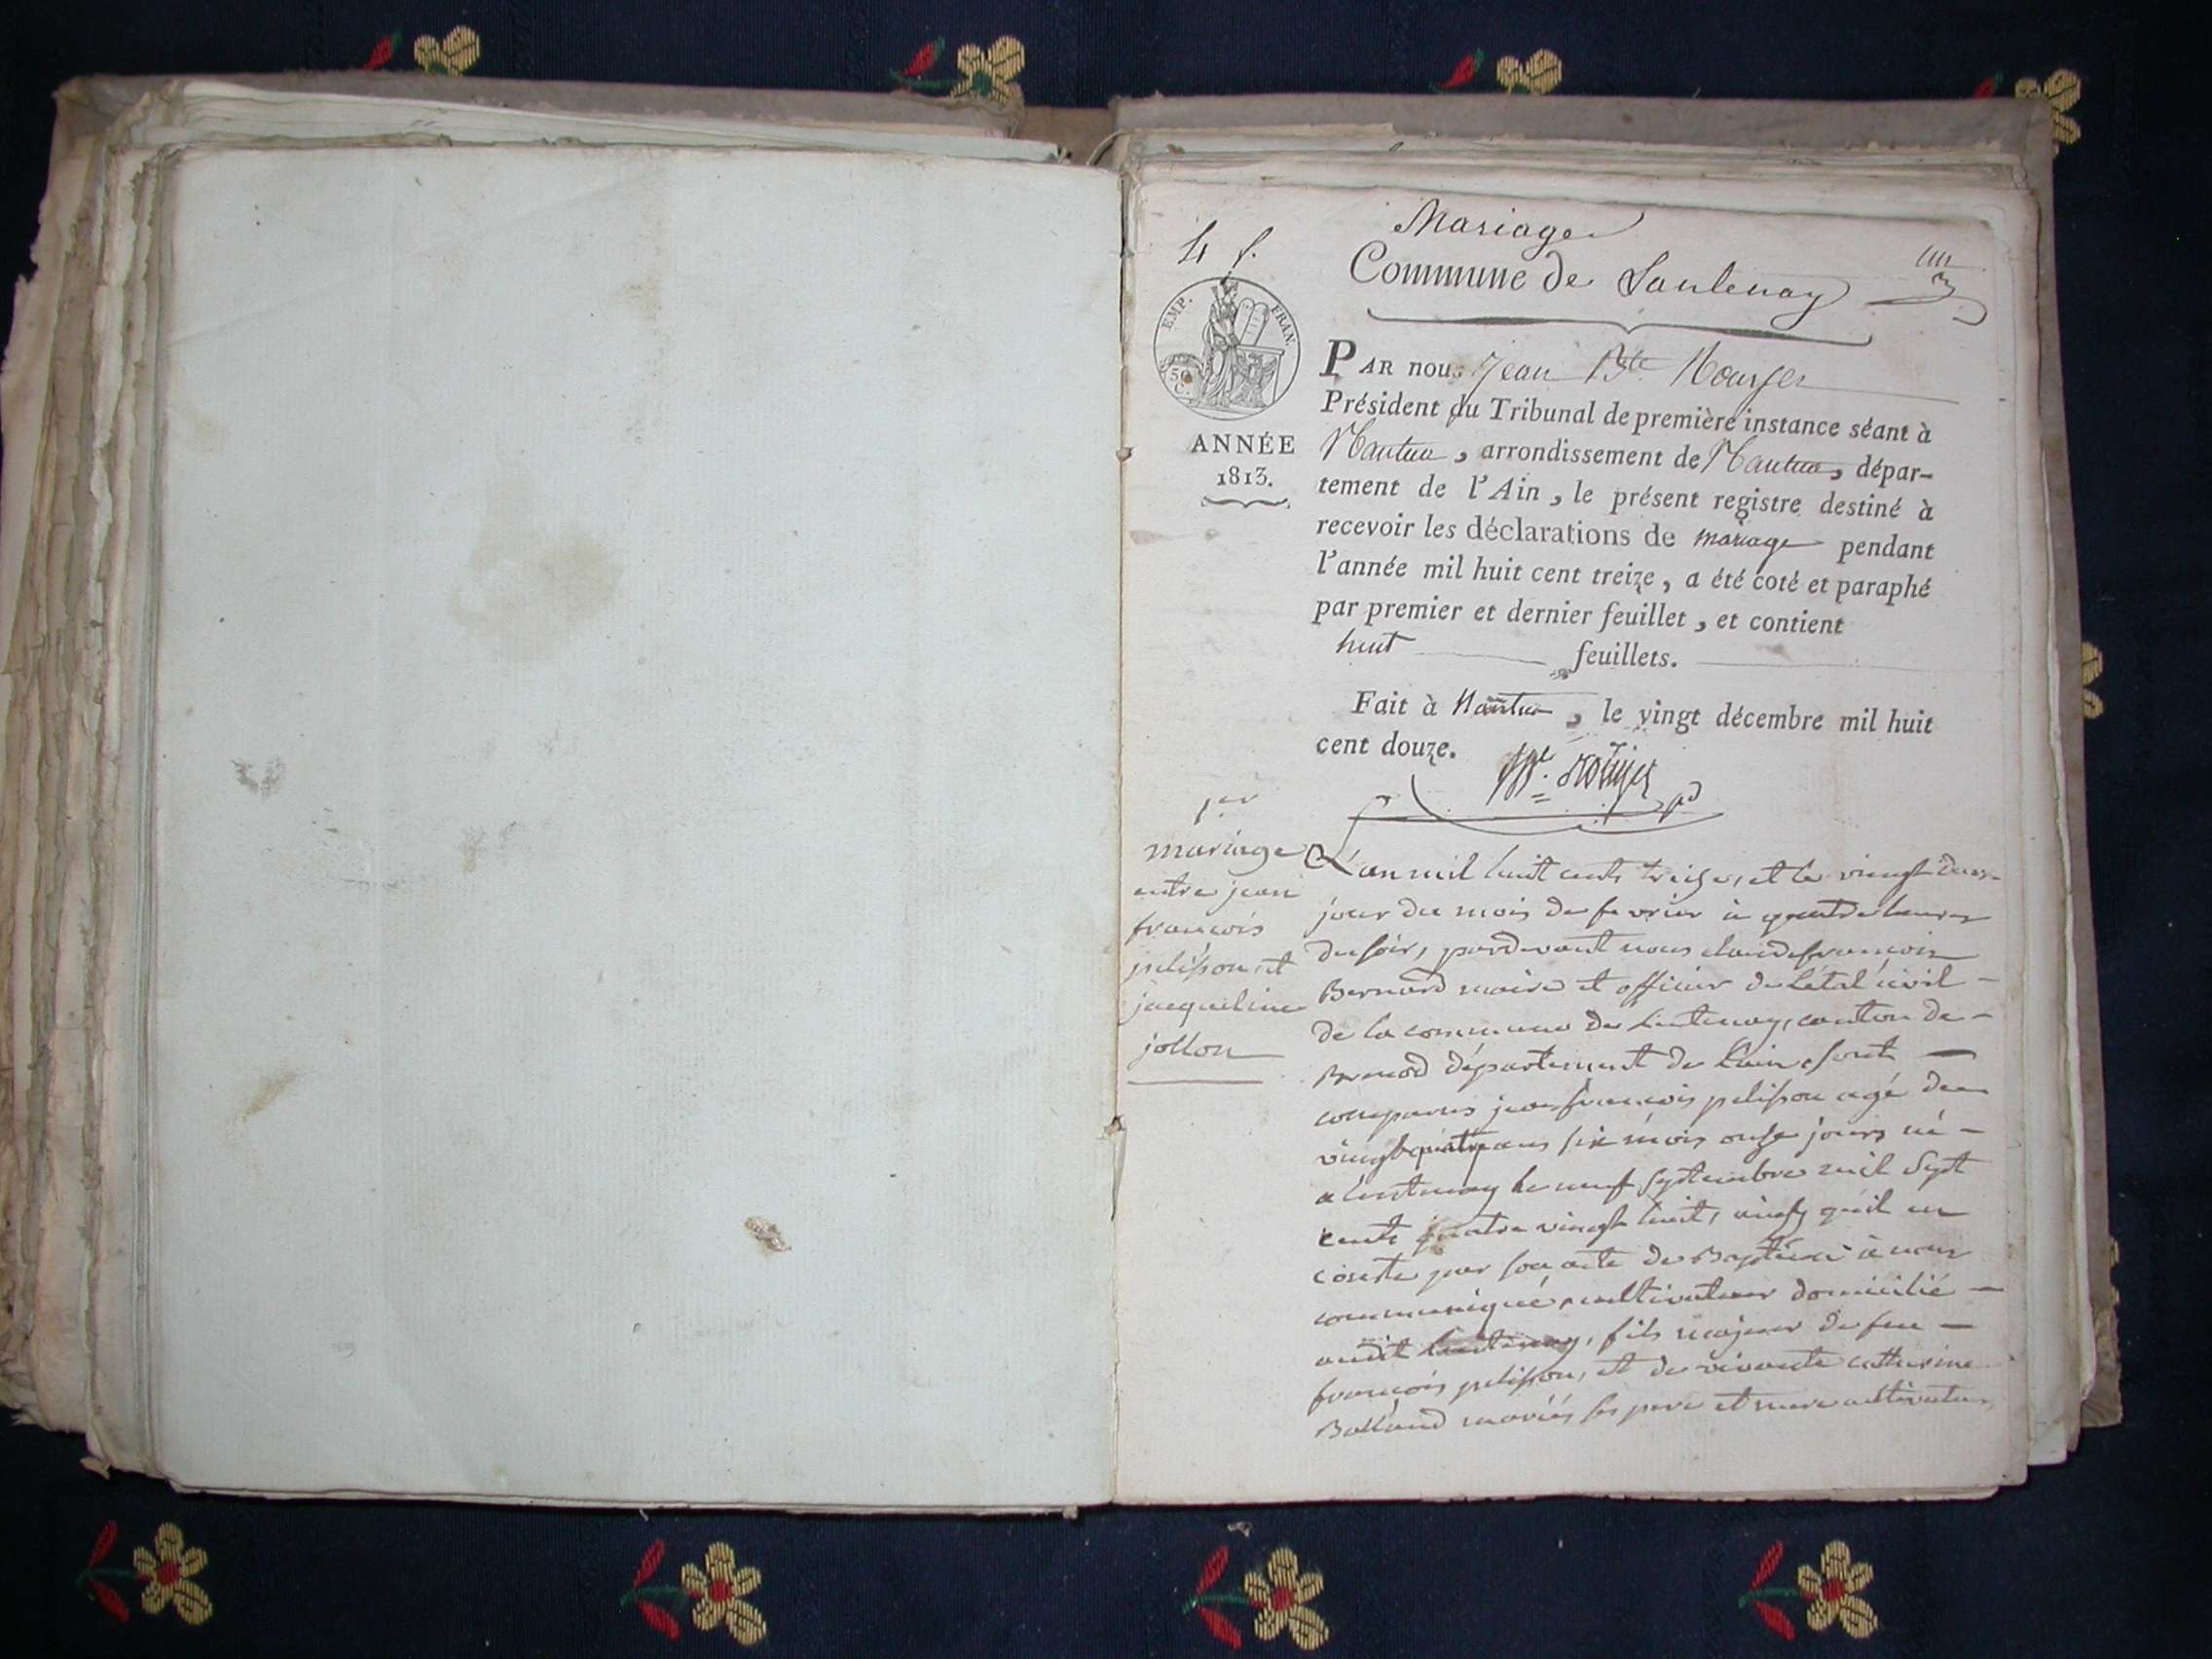 Mariage
4 f.
Commune de Lantenay
un
EMP. FRAN.
50
C.
PAR nous Jean Bte
Président du Tribunal de première instance séant à
Nantua, arrondissement de Nantua, dépar-
ANNÉE
1813.
tement de l'Ain, le présent registre destiné à
recevoir les déclarations de mariage pendant
l'année mil huit cent treize, a été coté et paraphé
par premier et dernier feuillet, et contient
huit feuillets.
Fait à Nantua, le vingt décembre mil huit
cent douze.
1er
mariage
entre jean
francois
pelisson et
jacqueline
jollon
L'an mil huit cents treize, et le vingt deux
jour du mois de fevrier à quatre heures
du soir, pardevant nous claude francois
Bernard maire et officier de l'état civil -
de la commune de Lantenay, canton de -
Brenod département de L'ain, sont
comparus jean francois pelisson agé de
vingt quatre ans six mois onze jours né -
a Lantenay le neuf septembre mil sept
cents quatre vingt huit, ainsy qu'il en
conste par son acte de Baptême à nous
communiqué, cultivateur domicilié -
audit Lantenay, fils majeur de feu -
francois pelisson, et de vivante catherine
Balland mariés ses pere et mere cultivateurs